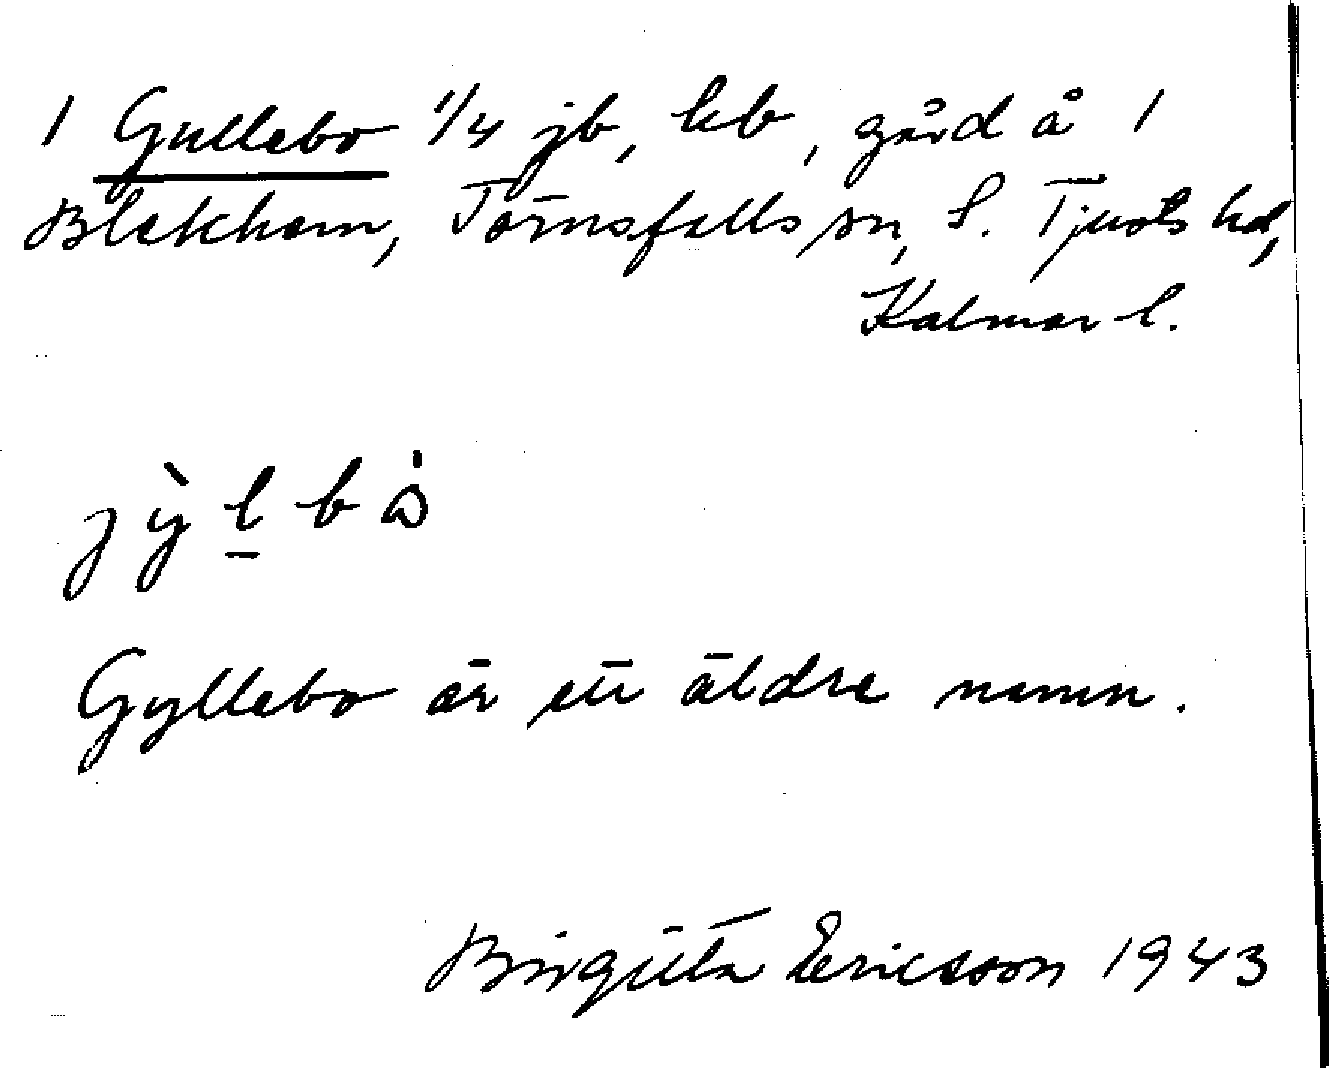 1 Gullebo 1/4 jb, kb, gård å 1
Blekhem, Törnsfalls sn, S. Tjusts hd,
Kalmar l.
jỳl̲bὡ
Gyllebo är ett äldre namn.
Birgitta Ericsson 1943